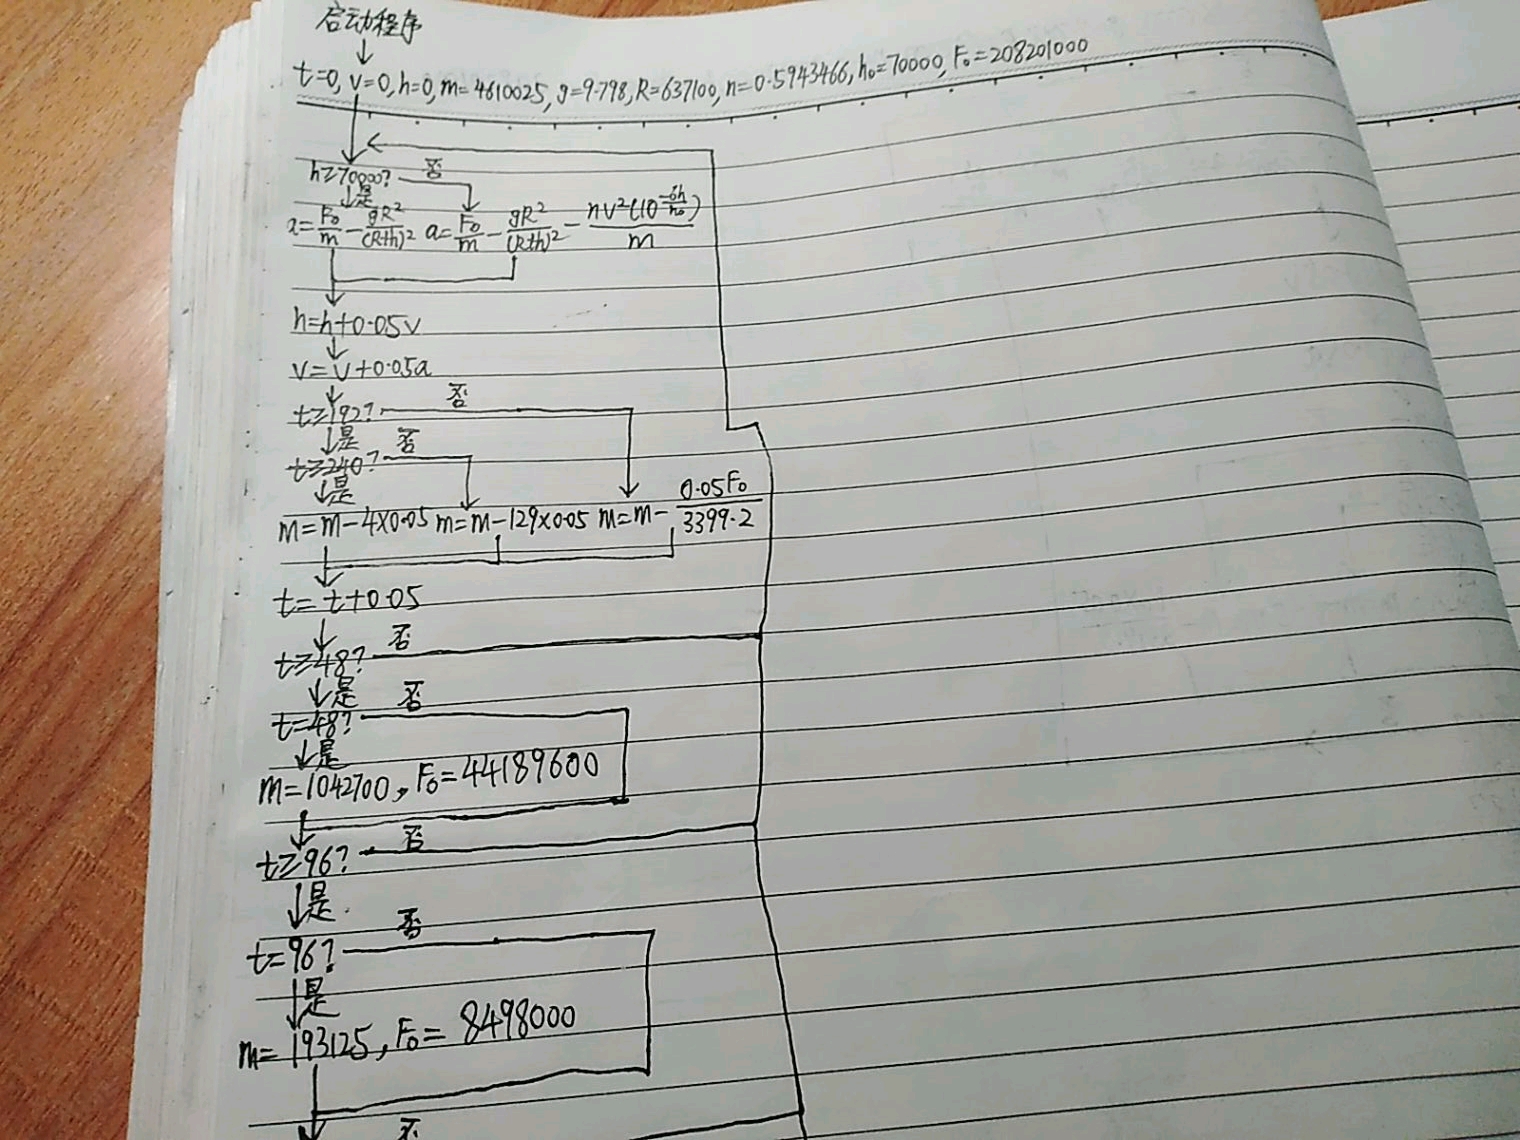 启动程序
t=0, v=0, h=0, m=4610025, g=9.798, R=637100, n=0.5943466, h₀=70000, F₀=208201000
h≥70000? 否
是
a=F₀/m-gR²/(R+h)² a=F₀/m-gR²/(R+h)²-nv²(10^(-6h/h₀))/m
h=h+0.05v
v=v+0.05a
t≥192? 否
是 否
t≥240?
是
m=m-4×0.05 m=m-129×0.05 m=m-0.05F₀/3399.2
t=t+0.05
否
t≥48?
是 否
t=48?
是
m=1042700, F₀=44189600
t≥96? 否
是
否
t=96?
是
m=193125, F₀=8498000
否